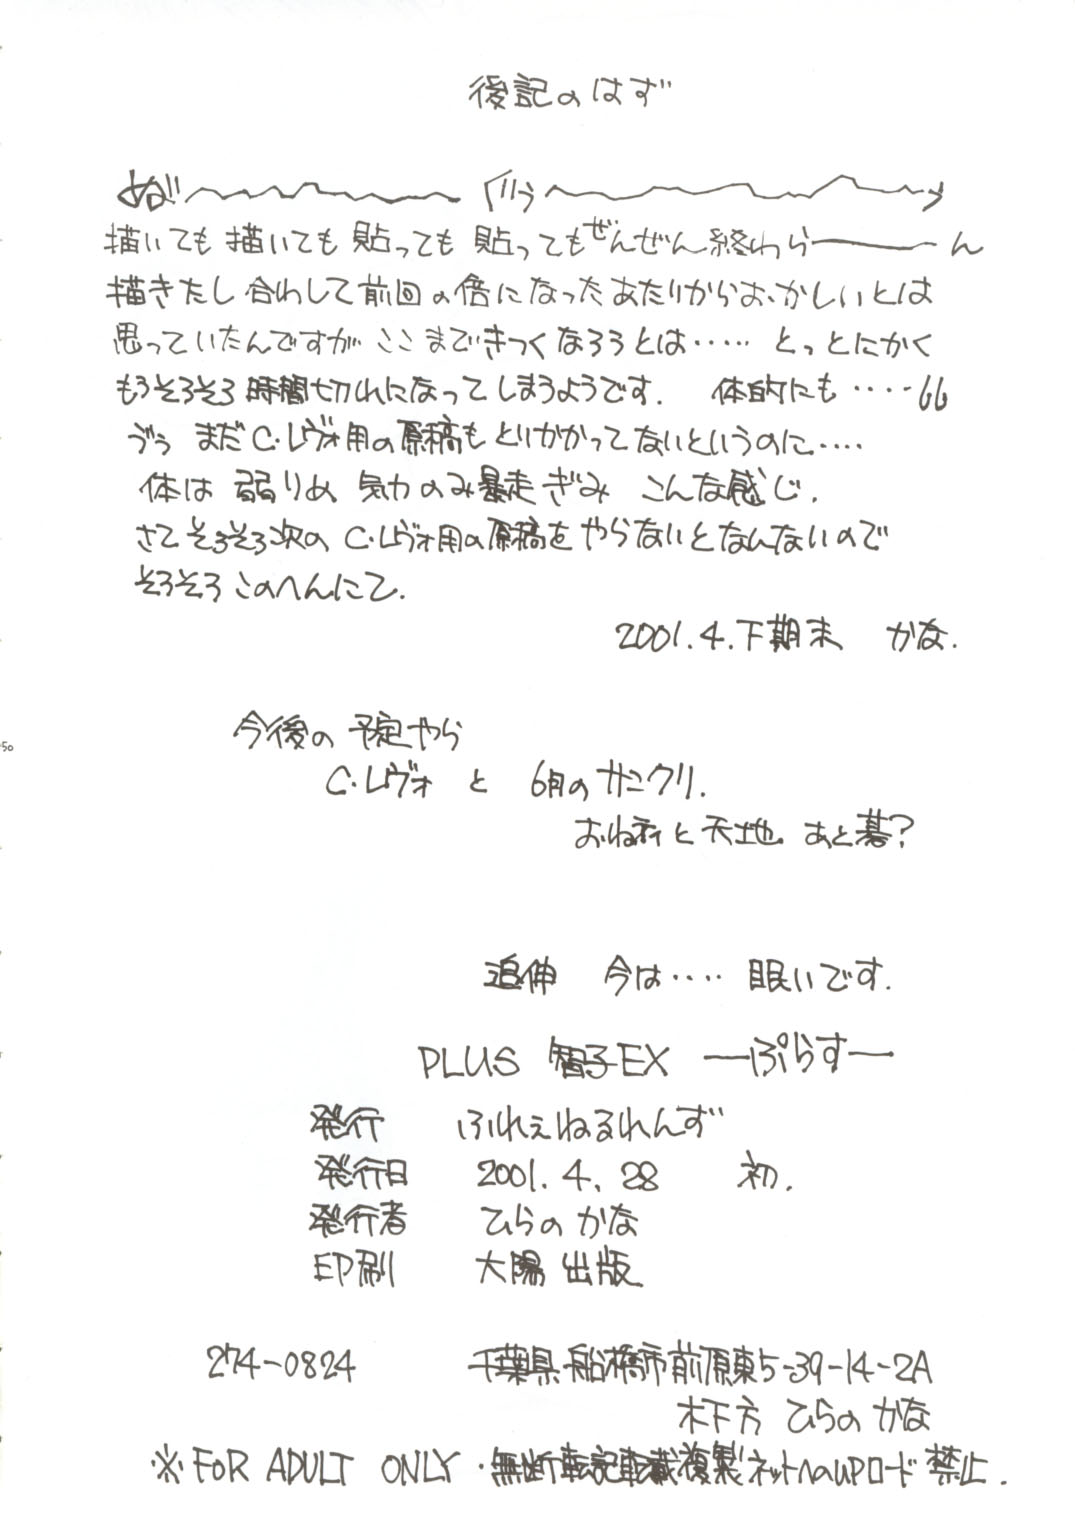 後記のはず
ぬ゙〜〜〜ぐぅ〜〜〜っ
描いても 描いても 貼っても 貼ってもぜんぜん終わら―――ん
描きたし 合わして前回の倍になったあたりからおかしいとは
思っていたんですが ここまできつくなろうとは‥‥‥ とっとにかく
もうそろそろ時間切れになってしまうようです. 体的にも ‥‥
ゔぅ まだC.レヴォ用の原稿もとりかかってないというのに‥‥
体は 弱りめ 気力のみ暴走ぎみ こんな感じ.
さてそろそろ次の C.レヴォ用の原稿をやらないとなんないので
そろそろ このへんにて.
2001.4.下期末 かな.
今後の予定やら
50
C.レヴォ と 6月のサンクリ.
おねティと天地 あと碁?
追伸 今は‥‥ 眠いです.
PLUS 智子EX ―ぷらす―
発行 ふれぇねるれんず
発行日 2001.4.28 初.
発行者 ひらの かな
印刷 大陽出版
274-0824 千葉県船橋市前原東5-39-14-2A
木下方 ひらの かな
※FOR ADULT ONLY・無断転記転載複製ネットへのUPロード禁止.